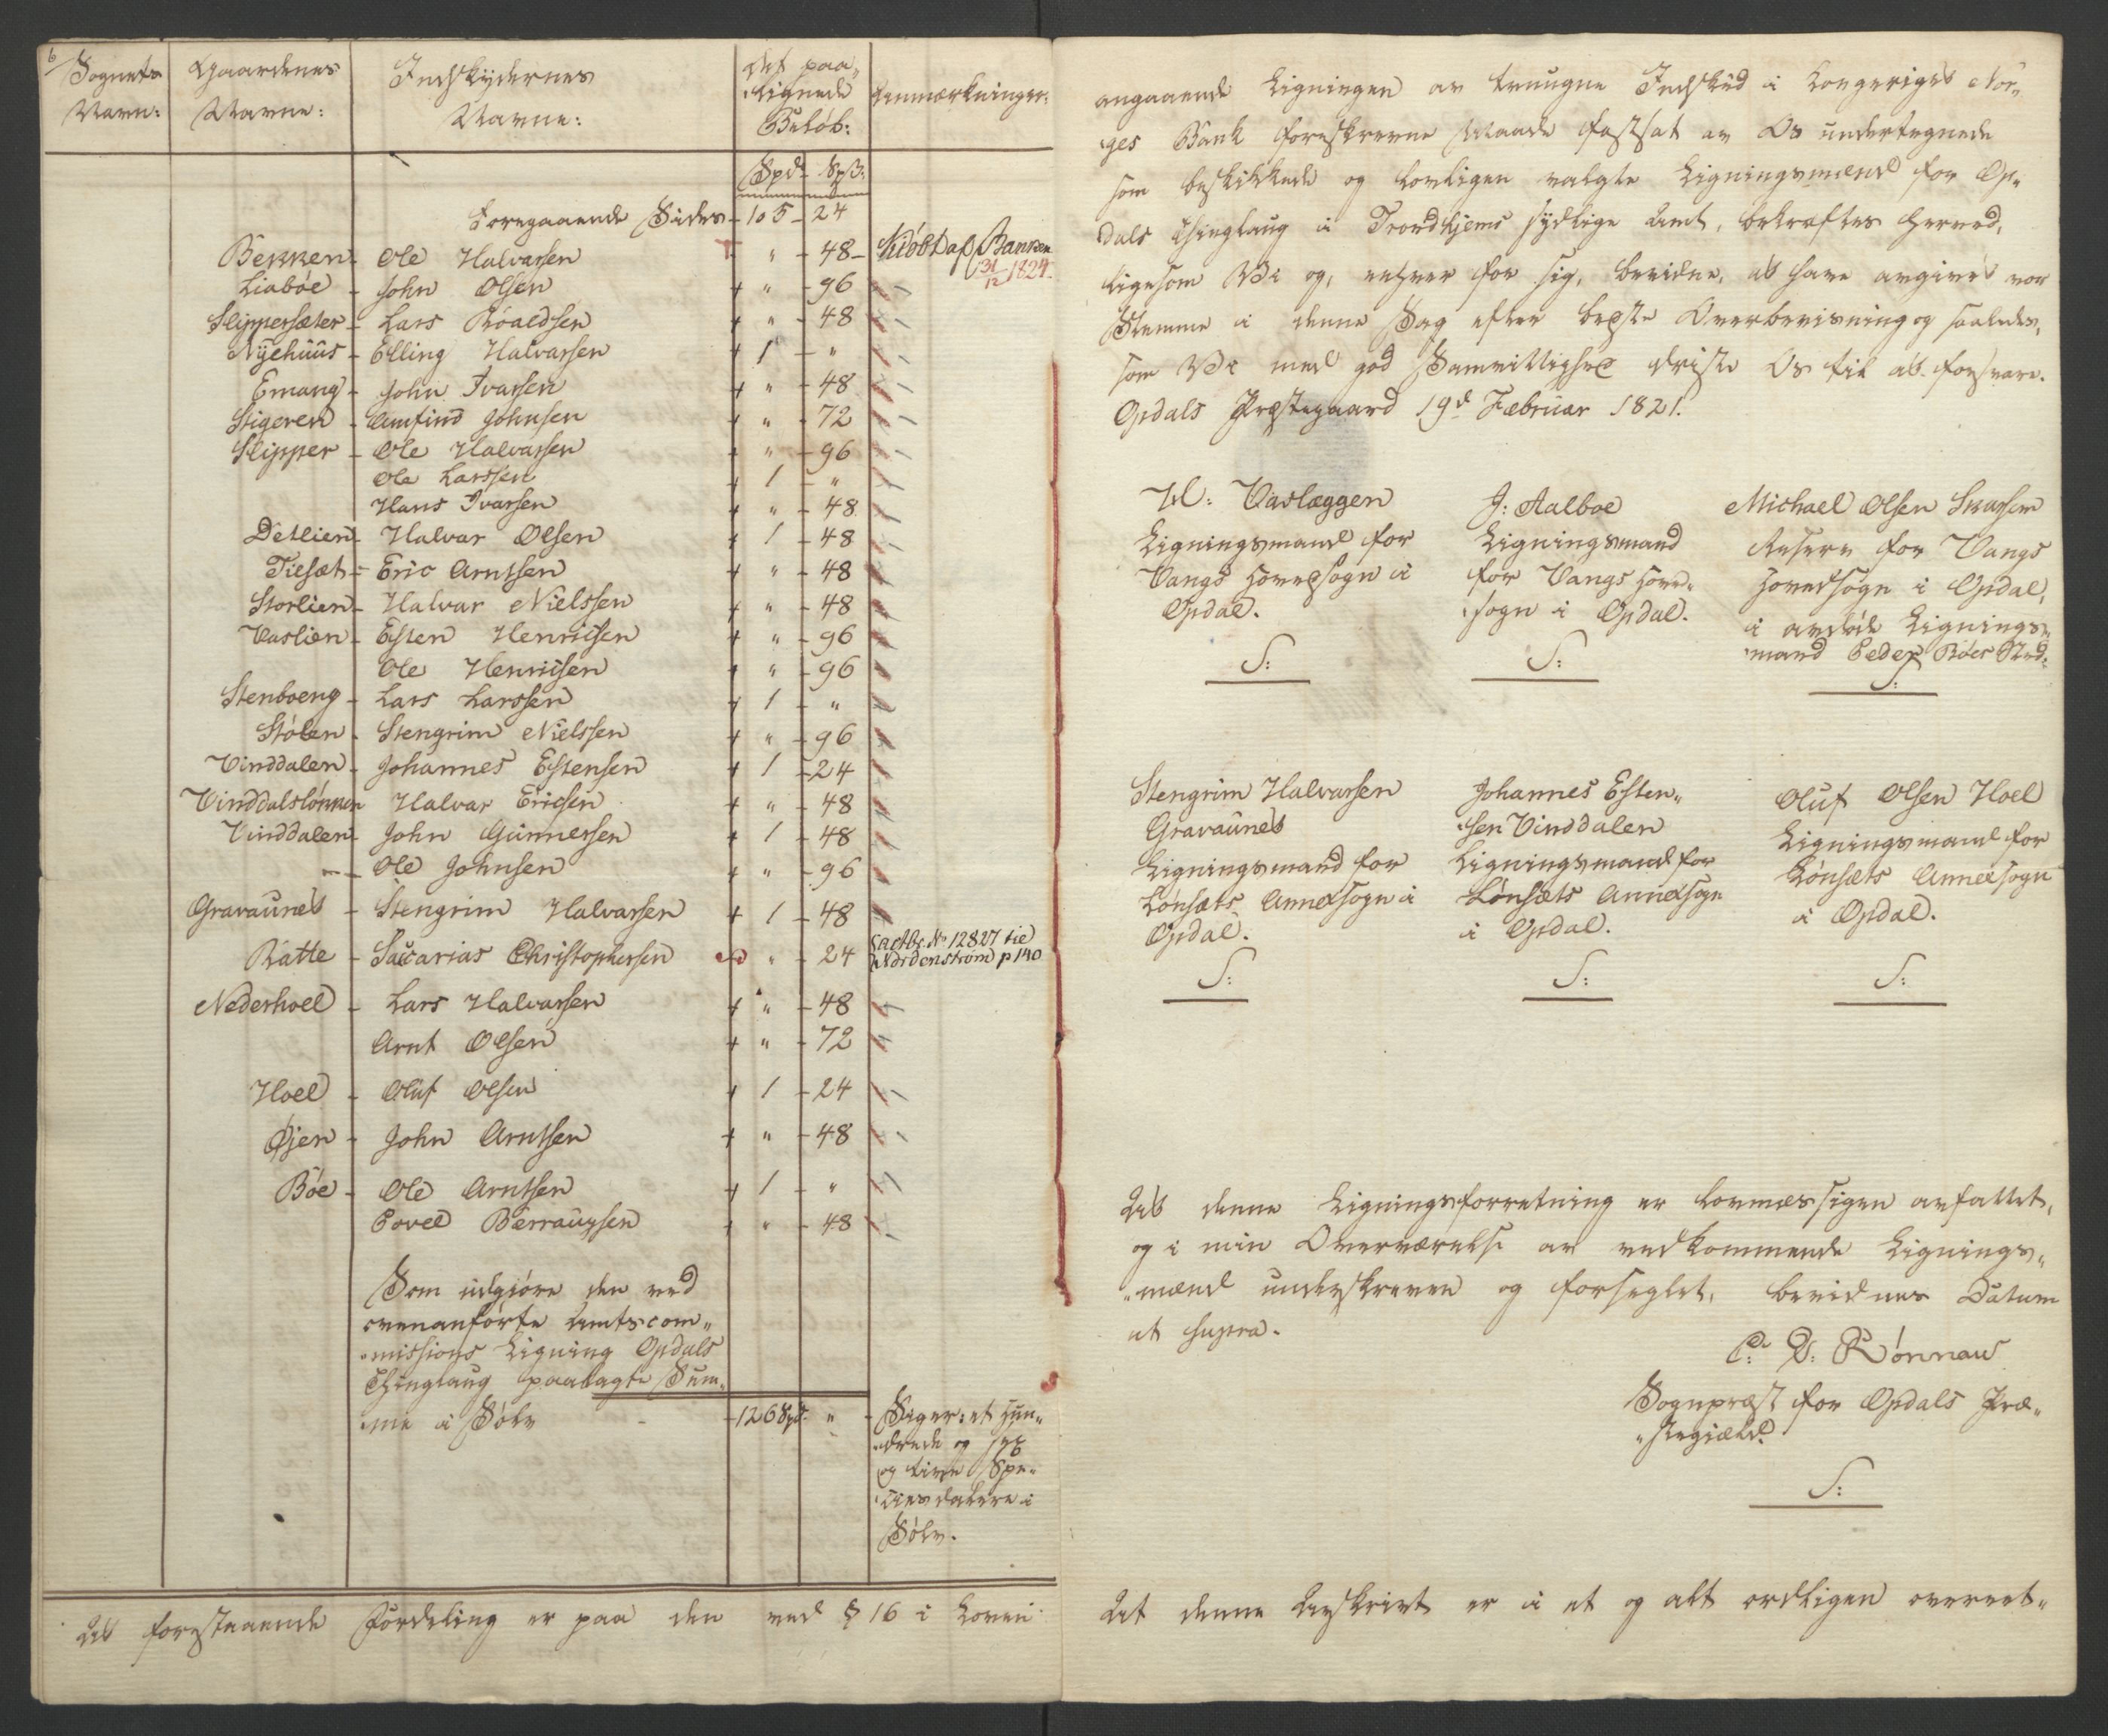 6
Sognets Navn: Gaardenes Navne: Indskydernes Navne: Det paalignede Beløb: Anmærkninger:
Spd. Sß.
Foregaaende Sides - 105 - 24
Bekken - Ole Halvarsen " - 48 - Kiøbt af Banken 31/12 1824.
Liabøe - John Olsen + " - 96
Slippersæter - Lars Roaldsen + " - 48
Nyehuus - Elling Halvarsen + 1 - "
Emang - John Ivarsen + " - 48
Stigeren - Amfind Johnsen + " - 72
Slipper - Ole Halvarsen + " - 96
Ole Larssen + 1 - "
Hans Ivarsen + " - 48
Detlien - Halvar Olsen + 1 - 48
Tilsæt - Eric Arntsen + " - 48
Storlien - Halvar Nielssen + " - 48
Vaslien - Esten Henricsen + " - 96
Ole Henricsen + " - 96
Stenboeng - Lars Larssen + 1 - "
Stølen - Stengrim Nielssen + " - 96
Vinddalen - Johannes Estensen + 1 - 24
Vinddalsløkken Halvar Ericsen + " - 48
Vinddalen - John Gunnersen + 1 - 48
" - Ole Johnsen + " - 96
Gravaunet - Stengrim Halvarsen + 1 - 48
Ratte - Saccarias Christophersen " 24 Nr. 12827 til Nordenstrøm p 140
Nederhoel - Lars Halvarsen + " - 48
Arnt Olsen + " - 72
Hoel - Oluf Olsen + 1 - 24
Øjen - John Arntsen + " - 48
Bøe - Ole Arntsen + 1 - "
Povel Berraugsen + " - 48
Som udgjøre den ved
ovenanførte Amtscom„
„missions Ligning Opdals
Thinglaug paalagte Sum„
„me i Sølv - 126 Spd. " - Siger: et Hun„
„drede og sex
og tive Spe„
„ciesdalere i
Sølv.
At forestaaende Fordeling er paa den ved § 16 i Loven
angaaende Ligningen av tvungne Indskud i Kongeriget Nor„
„ges Bank foreskrevne Maade fastsat av Os undertegnede
som beskikkede og lovligen valgte Ligningsmænd for Op„
dals Thinglaug i Trondhjems sydlige Amt, bekræftes herved,
ligesom Vi og, enhver for sig, bevidne, at have avgivet vor
Stemme i denne Sag efter bedste Overbevisning og saaledes,
som Vi med god Samvittighed driste Os til at forsvare.
Opdals Præstegaard 19d Februar 1821.
Vaslæggen
Ligningsmand for
Vangs Hovedsogn i
Opdal.
S:
J: Aalboe
Ligningsmand
for Vangs Hoved„
„sogn i Opdal.
S:
Michael Olsen Skarsem
Reserve for Vangs
Hovedsogn i Opdal,
i avdøde Lignings„
„mand Peder Bøes Sted.
S:
Stengrim Halvarsen
Gravaunet
Ligningsmand for
Lønsæts Annexsogn i
Opdal.
S:
Johannes Esten„
„sen Vinddalen
Ligningsmand for
Lønsæts Annexsogn
i Opdal.
S:
Oluf Olsen Hoel
Ligningsmand for
Lønsæts Annexsogn
i Opdal.
S:
At denne Ligningsforretning er lovmæssigen avfattet,
og i min Overværelse av vedkommende Lignings„
„mænd underskreven og forseglet, bevidnes Datum
ut supra.
Rønnau
Sognpræst for Opdals Præ„
„stegield.
S:
At denne Avskrivt er i et og alt ordligen overeet„